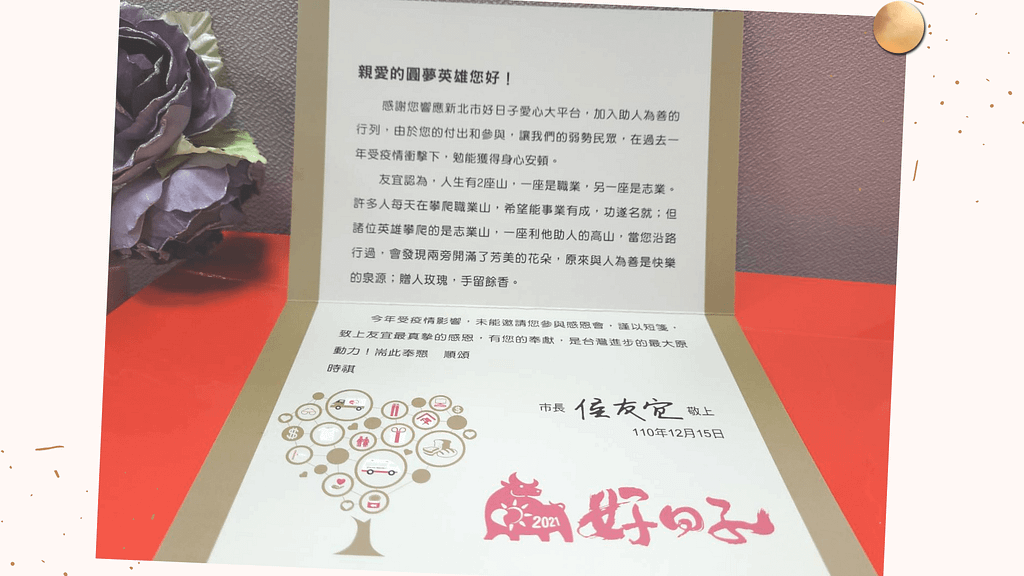 親愛的圓夢英雄您好！
感謝您響應新北市好日子愛心大平台，加入助人為善的
行列，由於您的付出和參與，讓我們的弱勢民眾，在過去一
年受疫情衝擊下，勉能獲得身心安頓。
友宜認為，人生有2座山，一座是職業，另一座是志業。
許多人每天在攀爬職業山，希望能事業有成，功遂名就；但
諸位英雄攀爬的是志業山，一座利他助人的高山，當您沿路
行過，會發現兩旁開滿了芳美的花朵，原來與人為善是快樂
的泉源；贈人玫瑰，手留餘香。
今年受疫情影響，未能邀請您參與感恩會，謹以短箋，
致上友宜最真摯的感恩，有您的奉獻，是台灣進步的最大原
動力！耑此奉懇　順頌
時祺
市長 侯友宜 敬上
110年12月15日
2021 好日子